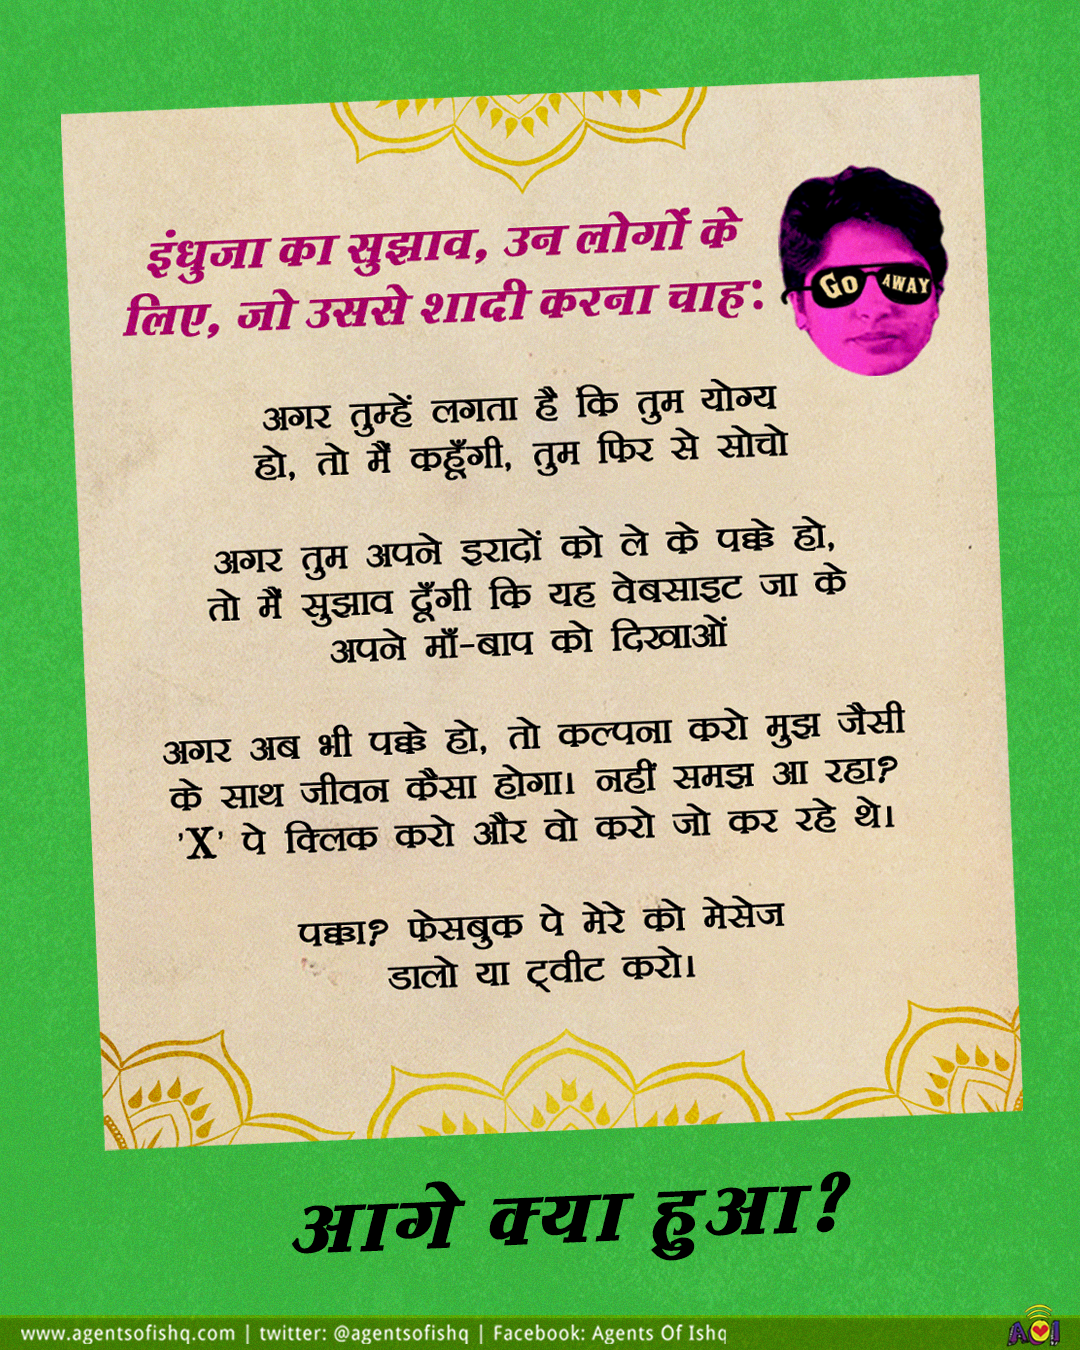 इंधुजा का सुझाव, उन लोगों के
लिए, जो उससे शादी करना चाह:
GO AWAY
अगर तुम्हें लगता है कि तुम योग्य
हो, तो मैं कहूँगी, तुम फिर से सोचो
अगर तुम अपने इरादों को ले के पक्के हो,
तो मैं सुझाव दूँगी कि यह वेबसाइट जा के
अपने माँ-बाप को दिखाओं
अगर अब भी पक्के हो, तो कल्पना करो मुझ जैसी
के साथ जीवन कैसा होगा। नहीं समझ आ रहा?
'X' पे क्लिक करो और वो करो जो कर रहे थे।
पक्का? फेसबुक पे मेरे को मेसेज
डालो या ट्वीट करो।
आगे क्या हुआ?
www.agentsofishq.com | twitter: @agentsofishq | Facebook: Agents Of Ishq
AOI